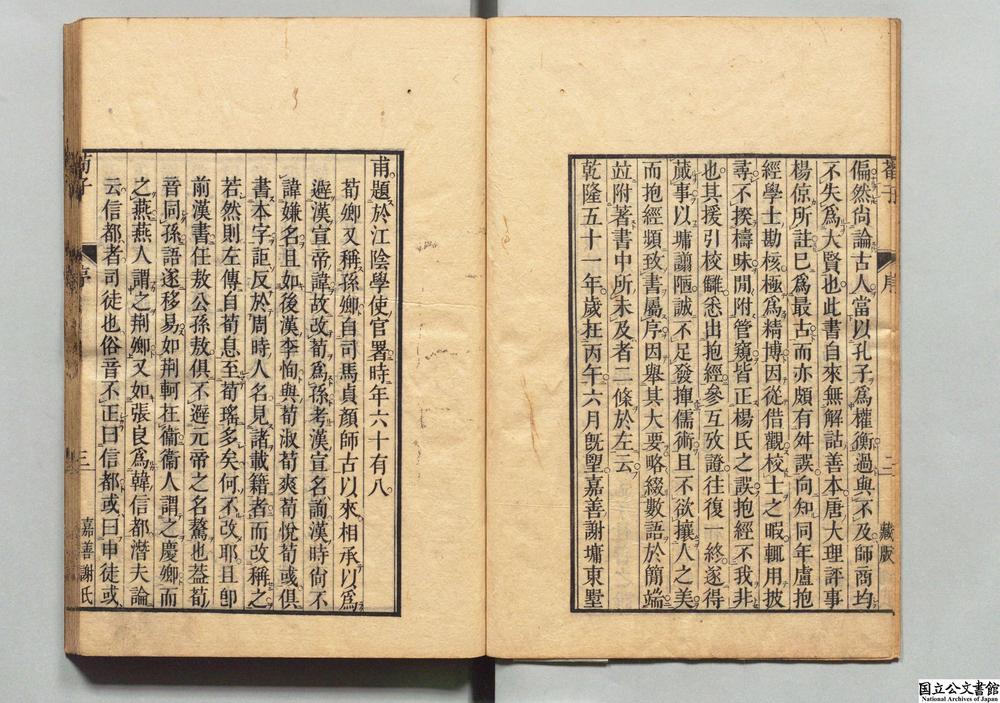 荀子
序
二
藏版
偏然尙論古人當以孔子爲權衡過與不及師商均
不失爲大賢也此書自來無解詁善本唐大理評事
楊倞所註已爲最古而亦頗有舛誤向知同年盧抱
經學士勘核極爲精博因從借觀校士之暇輒用披
尋不揆檮昧閒附管窺皆正楊氏之誤抱經不我非
也其援引校讎悉出抱經參互攷證往復一終遂得
蕆事以墉譾陋誠不足發揮儒術且不欲攘人之美
而抱經頻致書屬序因舉其大要略綴數語於簡端
竝附著書中所未及者二條於左云
乾隆五十一年歲在丙午六月旣望嘉善謝墉東墅
甫題於江陰學使官署時年六十有八
荀卿又稱孫卿自司馬貞顏師古以來相承以爲
避漢宣帝諱故改荀爲孫考漢宣名詢漢時尙不
諱嫌名且如後漢李恂與荀淑荀爽荀悅荀彧俱
書本字詎反於周時人名見諸載籍者而改稱之
若然則左傳自荀息至荀瑤多矣何不改耶且卽
前漢書任敖公孫敖俱不避元帝之名驁也蓋荀
音同孫語遂移易如荆軻在衞衞人謂之慶卿而
之燕燕人謂之荆卿又如張良爲韓信都潛夫論
云信都者司徒也俗音不正曰信都或曰申徒或
荀子
序
三
嘉善謝氏
国立公文書館
National Archives of Japan